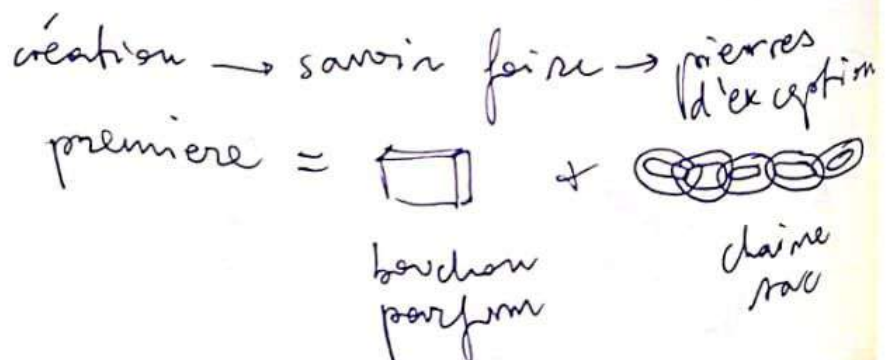 création → savoir faire → pierres
d'exception
premiere = +
bouchon
parfum
chaine
sac